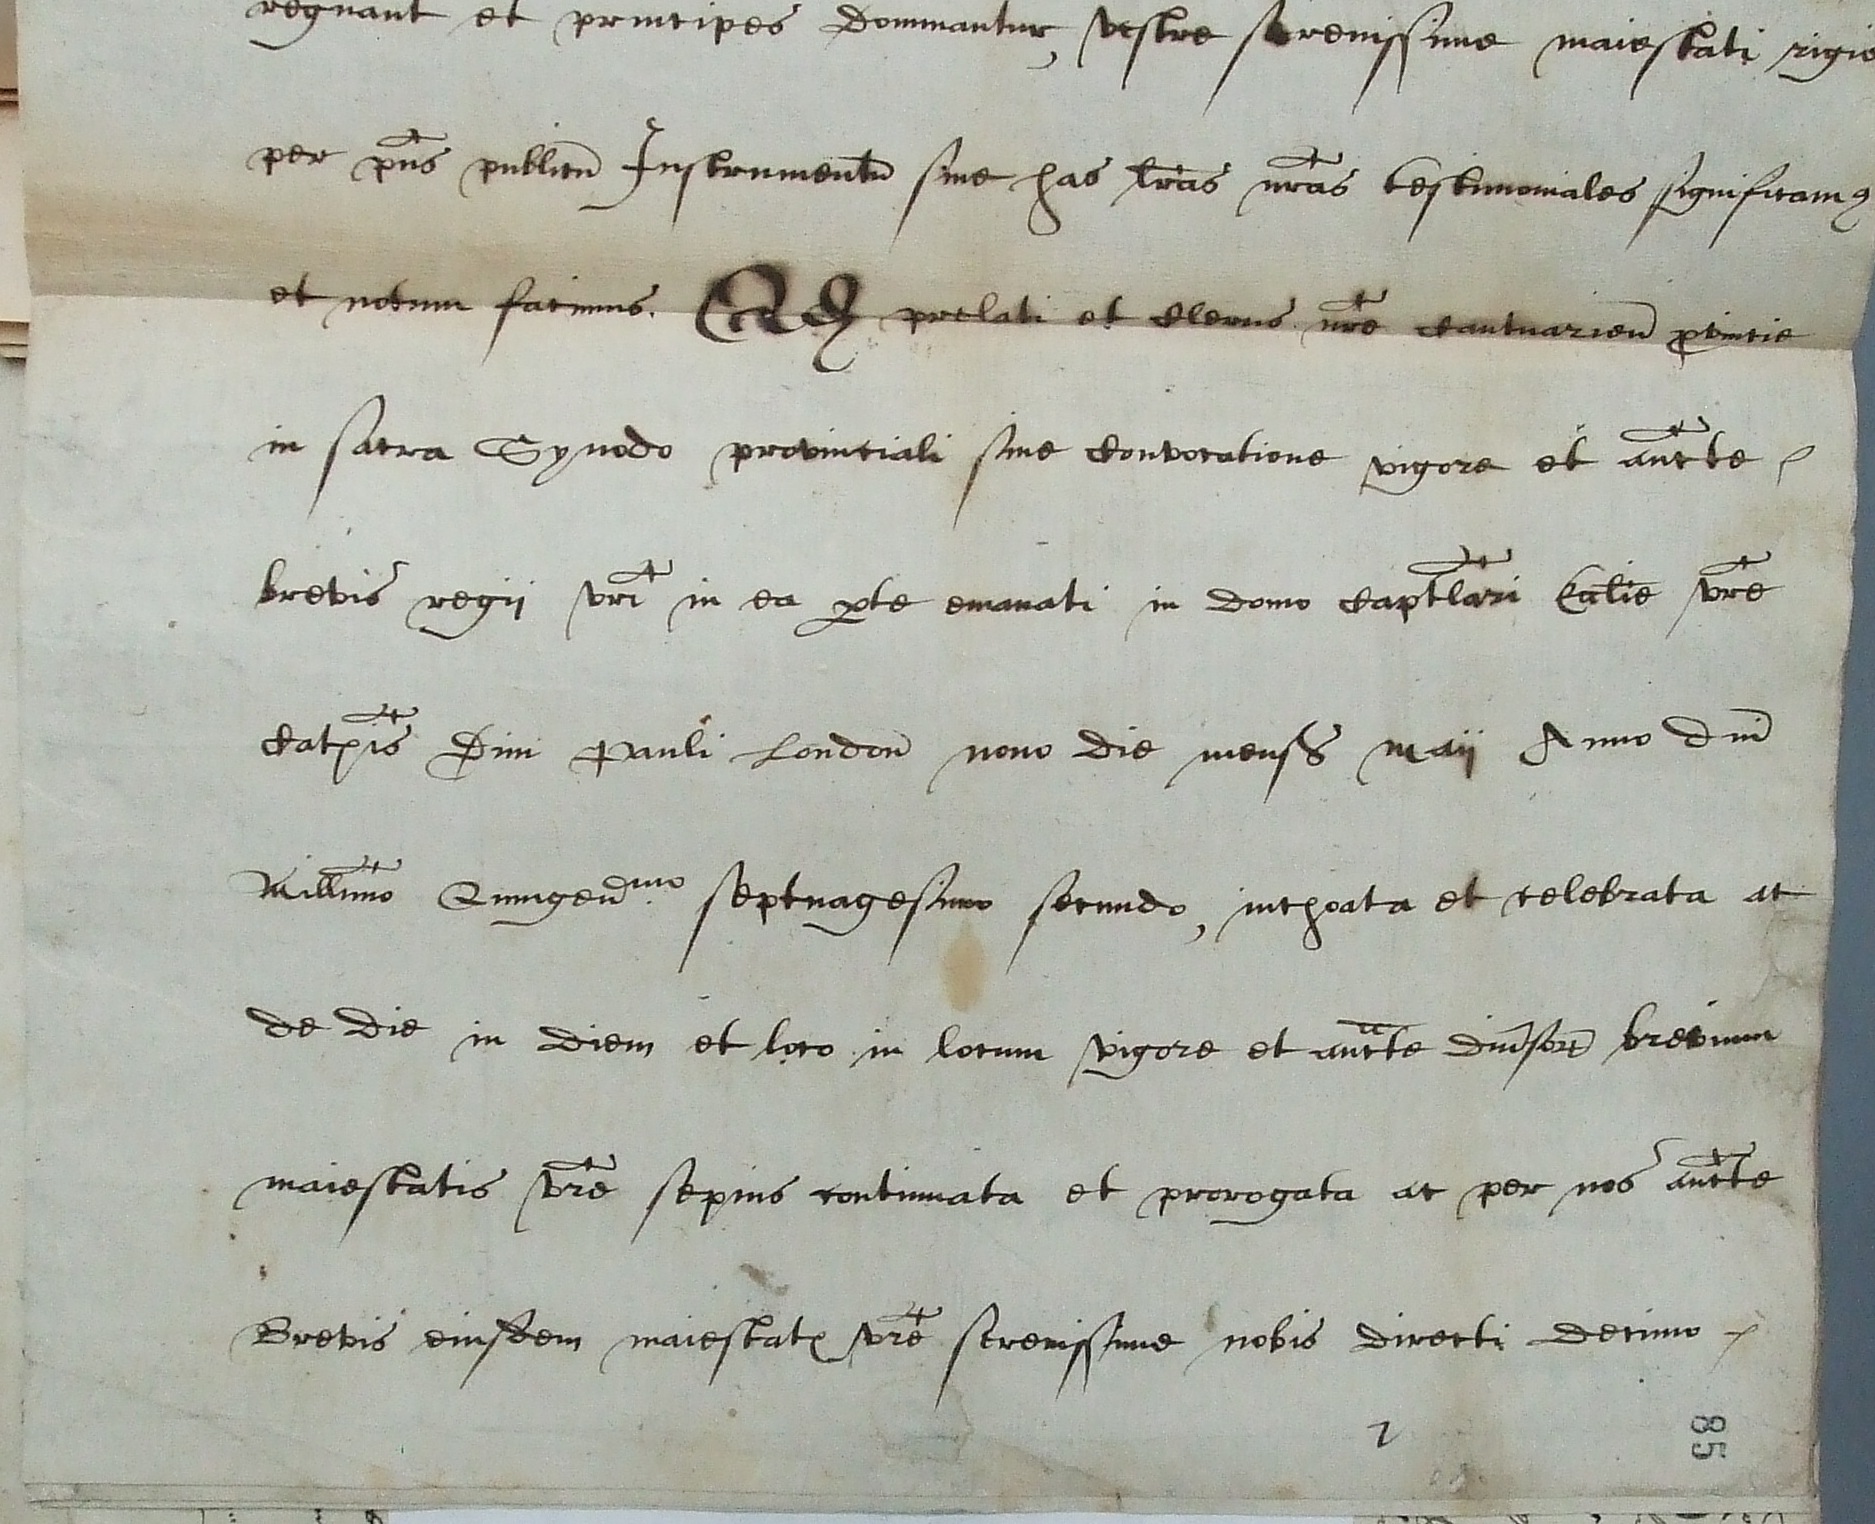 regnant et principes dominantur, vestre serenissime maiestati regie
per pñs publicũ Instrumentũ sive has l̃ras nr̃as testimoniales significamus
et notum facimus. Qd prelati et Clerus nr̃e Cantuarieñ ꝓvincie
in sacra Synodo provinciali sive Convocatione vigore et auc̃te
brevis regii vr̃i in ea ꝑte emanati in domo Capit̃lari Ecc̃lie vr̃e
Cathis Divi Pauli London̄ nono die mensis maii Anno Dñi
Mill̃imo Quingenmo. septuagesimo secundo, inchoata et celebrata ac
de die in diem et loco in locum vigore et auc̃te div̾sorꝝ brevium
maiestatis vr̃e sepius continuata et prorogata ac per nos auc̃te
Brevis eiusdem maiestatꝭ vr̃e serenissime nobis directi decimo
2
85